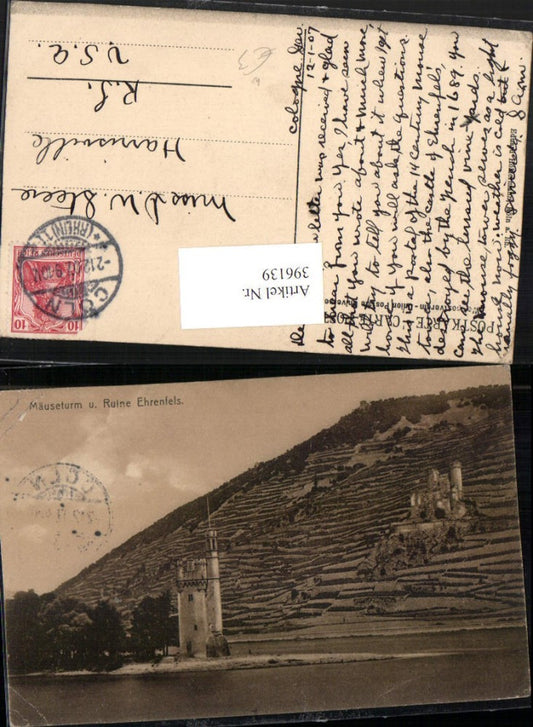 Cologne Ger.
12-1-07
letter was received & glad
to hear from you. Yes, I have seen
all that you wrote about & much more,
will try to tell you about it when I get
home if you will ask the questions.
This is a postal of the 14 century mouse
tower, also the castle of Ehrenfels,
destroyed by the French in 1689. You
can see the terraced vine yards.
The mouse tower serves as a light
house now. weather is cold but &
Miss D W Steere
Harrisville
R.I.
U.S.A.
POSTKARTE CARTE
Weltpostverein - Union Postale
Artikel Nr.
396139
CÖLN
(RHEIN) 1
10 10
Mäuseturm u. Ruine Ehrenfels.
CÖLN